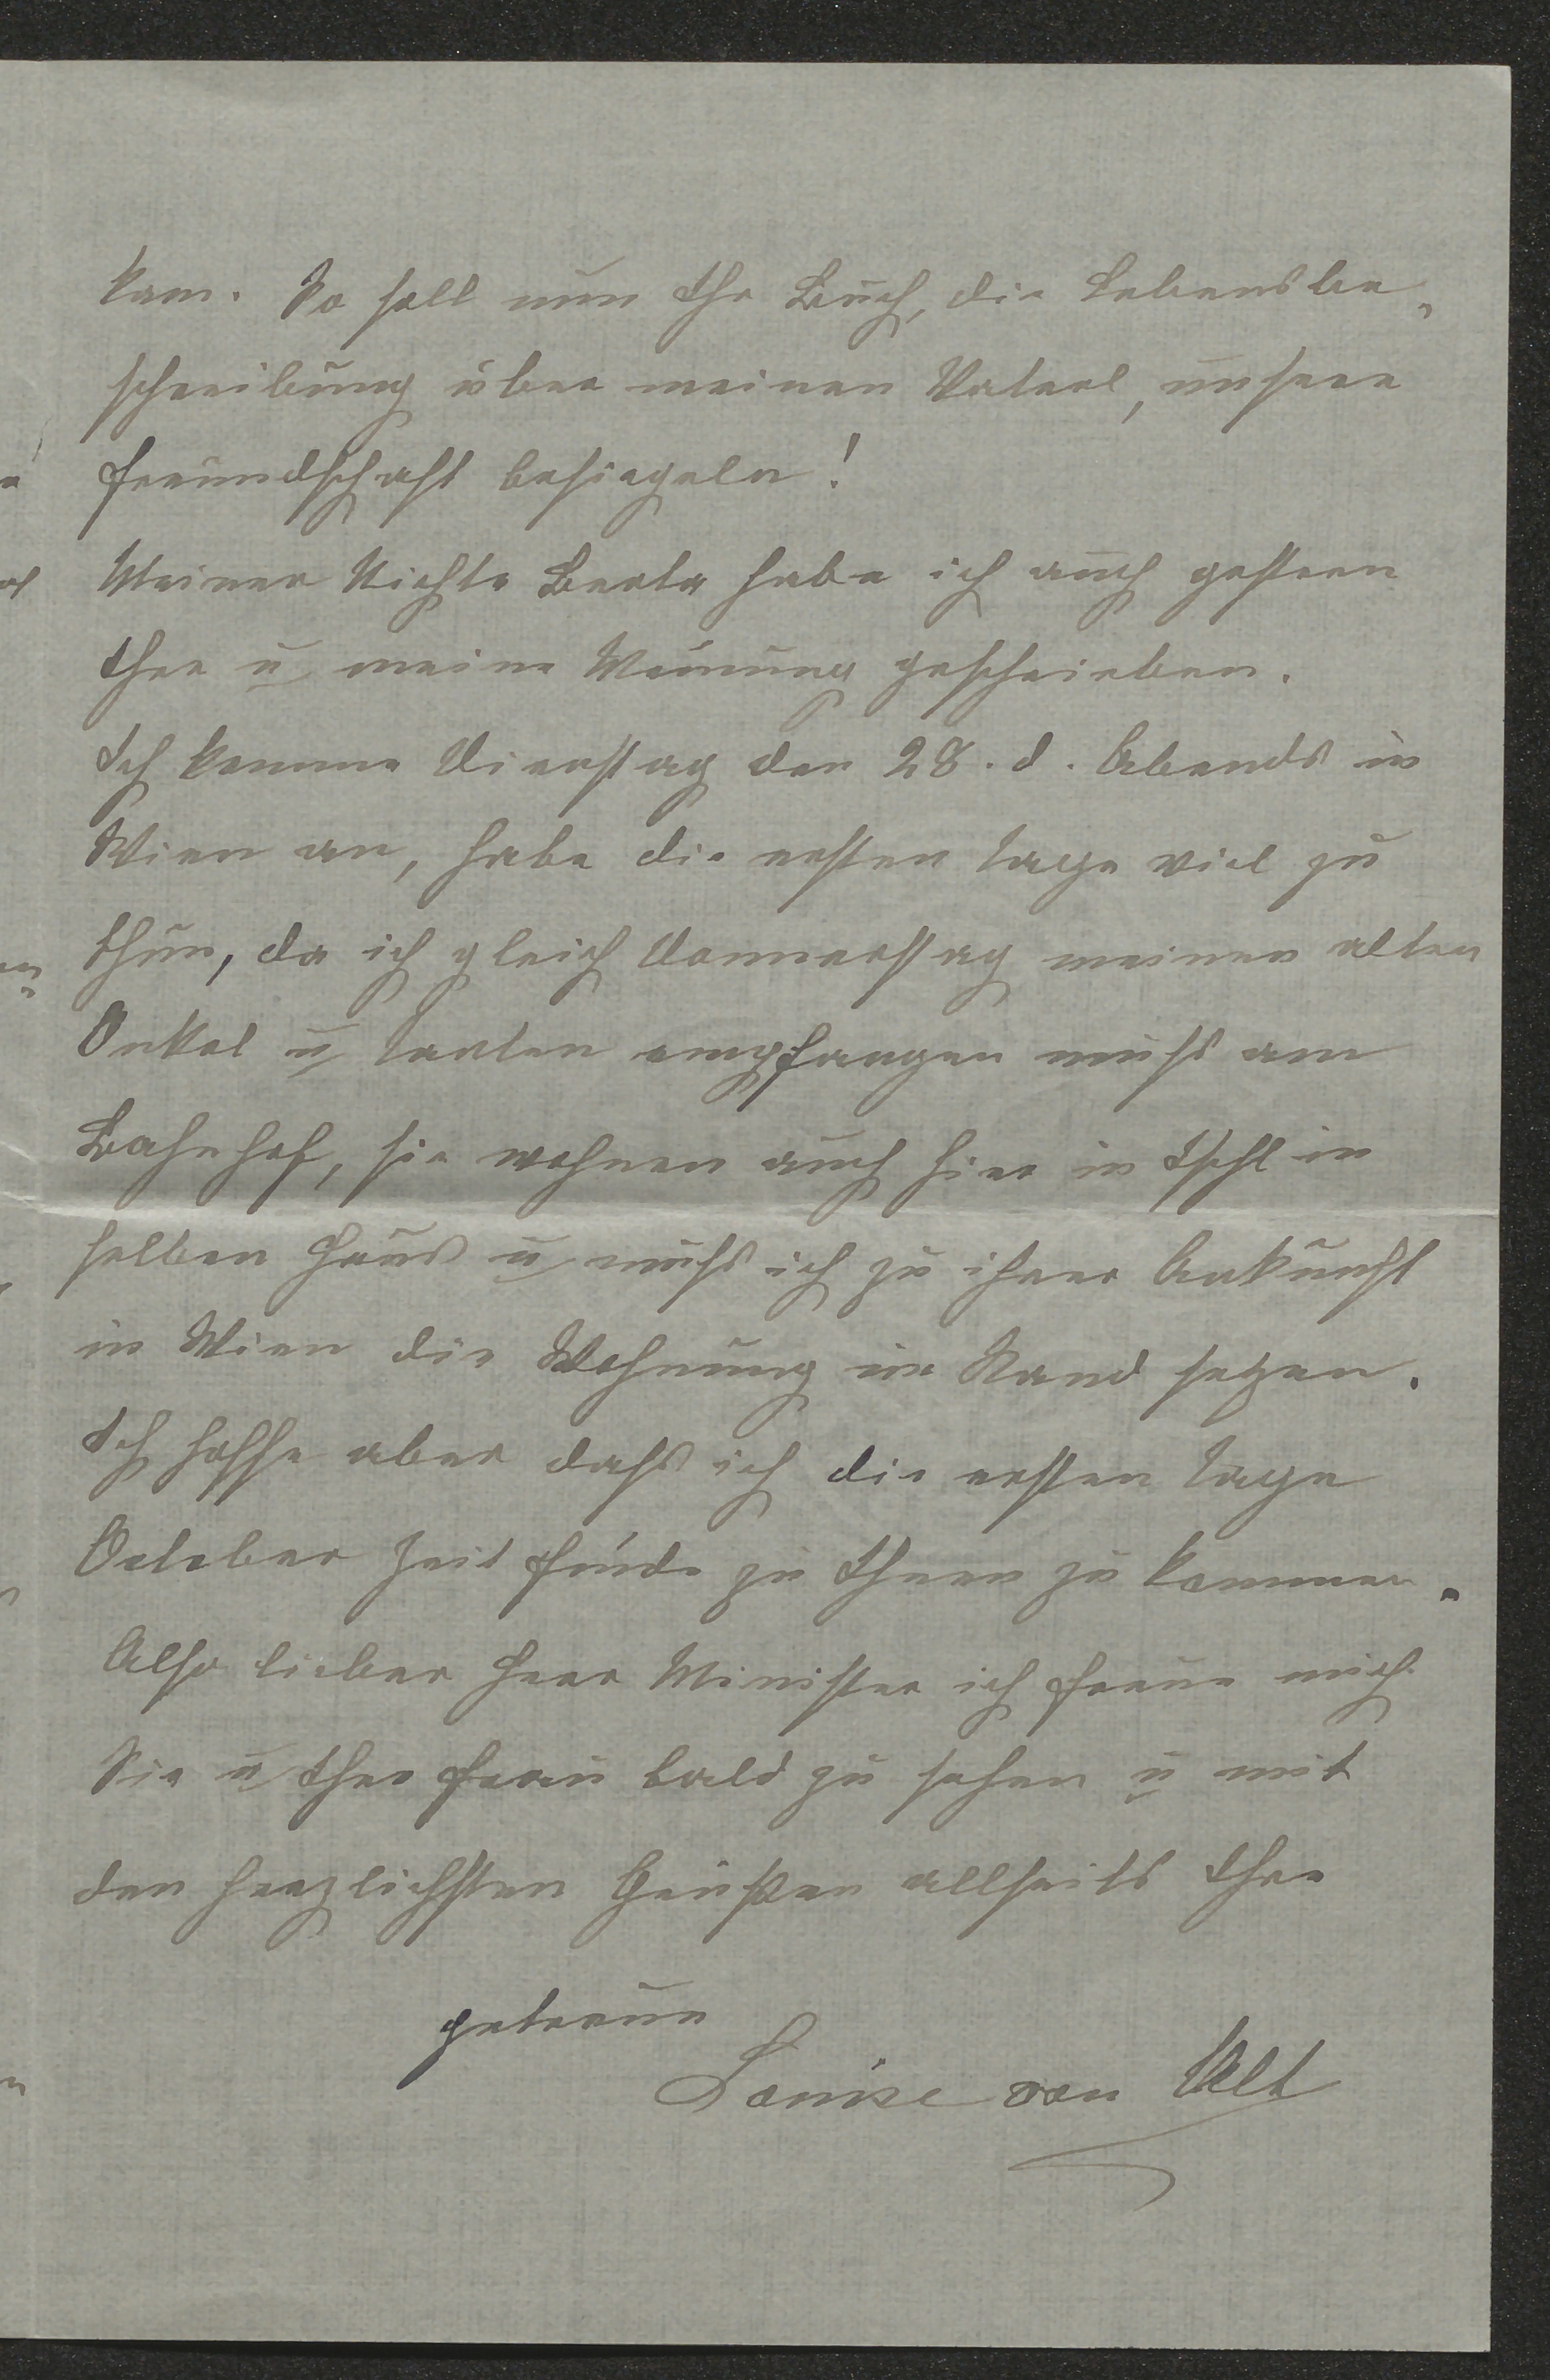 kam. So soll nun Ihr Buch, die Lebensbe„
schreibung über meinen Vaterl, unsere
Freundschaft besiegeln!
Meiner Nichte Berta habe ich auch gestern
Ihre u meine Meinung geschrieben.
Ich komme Dienstag den 28. d. Abends in
Wien an, habe die ersten Tage viel zu
thun, da ich gleich Donnerstag meinen alten
Onkel u Tanten empfangen muß am
Bahnhof, sie wohnen auch hier in Ischl in
selben Haus u muß ich zu ihrer Ankunft
in Wien die Wohnung im Stand setzen.
Ich hoffe aber daß ich die ersten Tage
October Zeit finde zu Ihnen zu kommen.
Also lieber Herr Minister ich freue mich
Sie u Ihre Frau bald zu sehen u mit
den herzlichsten Grüßen allseits Ihre
getreue
Louise von Alt